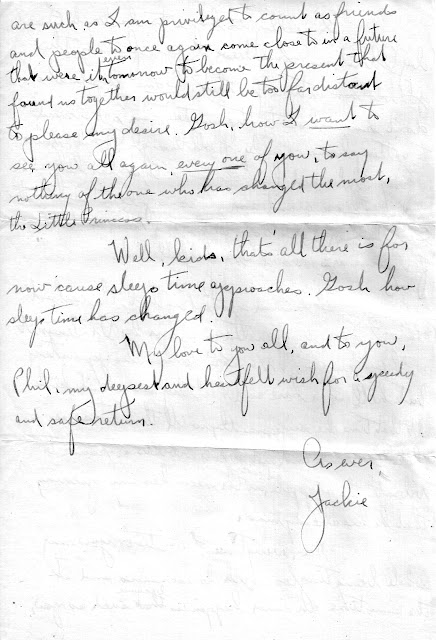 are such as I am privileged to count as friends
and people to once again come close to in a future
that were it even tomorrow to become the present that
found us together would still be too far distant
to please my desire. Gosh, how I want to
see you all again, every one of you, to say
nothing of the one who has changed the most,
the Little Princess.
Well, kids, that's all there is for
now 'cause sleep time approaches. Gosh how
sleep time has changed.
My love to you all, and to you,
Phil, my deepest and heartfelt wish for a speedy
and safe return.
As ever,
Jackie